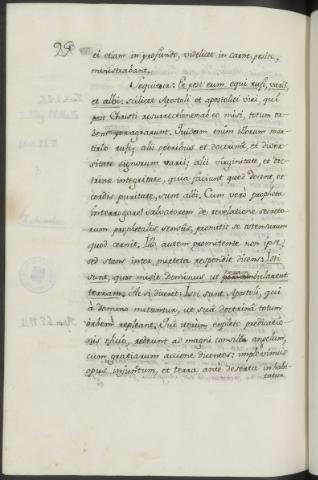 ei etiam in profundo, videlicet in carne positi,
ministrabant.
Sequitur: Et post eum equi rufi, varii,
et albi: scilicet Apostoli et apostolici viri, qui
post Christi resurrectionem ac missi, totum
orbem peragrarunt. Quidam enim illorum mar-
tirio rufi, alii operibus et doctrina, et diver-
sitate signorum varii; alii virginitate, et doc-
trinæ integritate, quia faciunt quod docent, et
cordis puritate, sunt albi. Cum vero propheta
interrogaret salvatorem de revelatione secreto-
rum prophetales sensus, promittit se ostensurum
quod cernit. Illo autem promittente non ipse,
sed stans inter myrteta respondit dicens: Isti
sunt, quos misit dominus ut perambularent
terram. Ac si diceret: Isti sunt Apostoli, qui
à domino mittuntur, ut sua doctrina totum
orbem repleant. Qui iterum expleto prædicatio-
nis suo, redeunt ad magni consilii angelum,
cum gratiarum actione dicentes: implevimus
opus injunctum, et terra ante deserta inhabi-
tatur